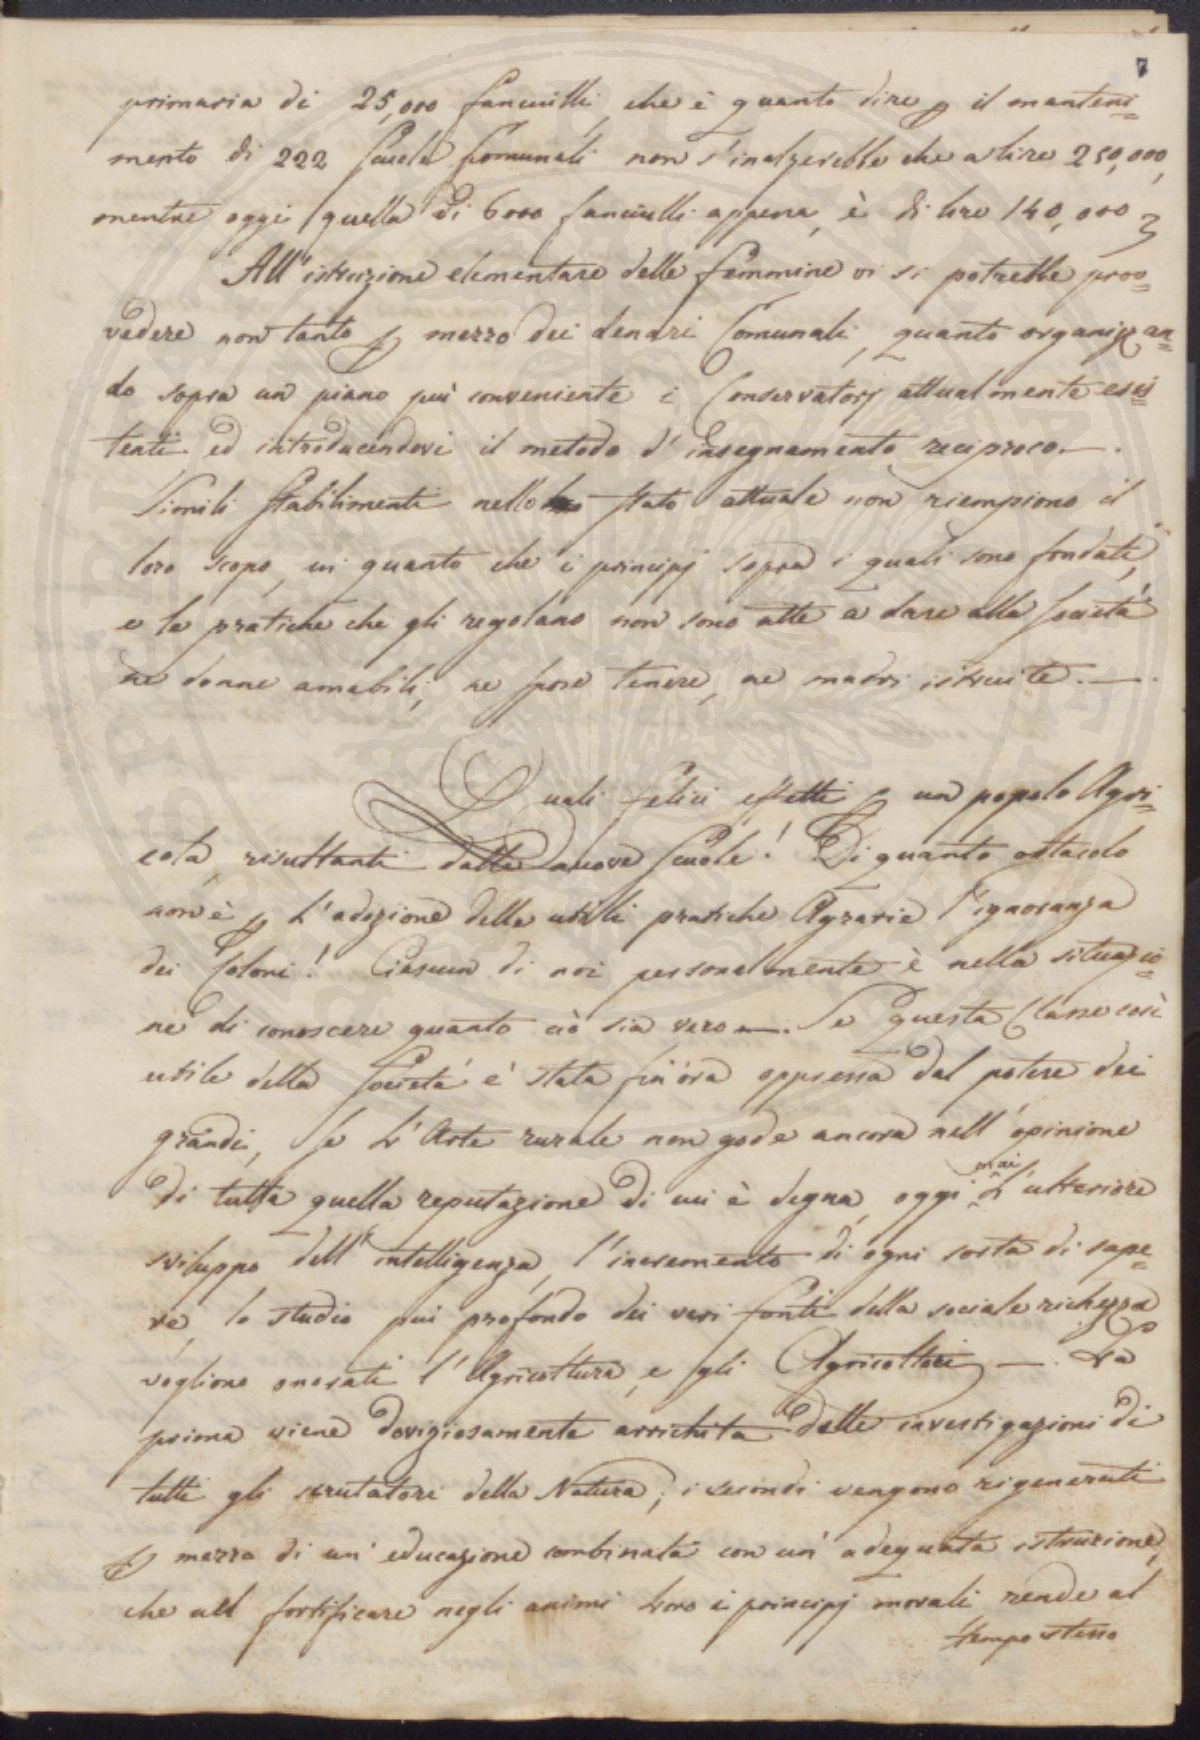 7
primaria di 25,000 fanciulli, che è quanto dire p il manteni=
mento di 222 Scuole Comunali non s'inalzerebbe che a lire 250,000,
mentre oggi quella di 6000 fanciulli appena, è di lire 140,000
All'istruzione elementare delle femmine vi si potrebbe prov=
vedere non tanto p mezzo dei denari Comunali, quanto organizzan=
do sopra un piano più conveniente i Conservatorj attualmente esis=
tenti ed introducendovi il metodo d'insegnamento reciproco. —.
Simili stabilimenti nello stato attuale non riempiono il
loro scopo, in quanto che i principj sopra i quali sono fondati,
e le pratiche che gli regolano non sono atte a dare alla Società
ne donne amabili, ne spose tenere, ne madri istruite. —.
Quali felici effetti p un popolo Agri=
cola, risultanti dalle nuove Scuole! Di quanto ostacolo
non è p L'adozione delle utili pratiche Agrarie l'ignoranza
dei Coloni! Ciascun di noi personalmente è nella situazio=
ne di conoscere quanto ciò sia vero —. Se questa Classe così
utile della Società è stata fin'ora oppressa dal potere dei
grandi, se L'Arte rurale non gode ancora nell'opinione
di tutta quella reputazione di cui è degna, oggi mai L'ulteriore
sviluppo dell'intelligenza, l'incremento di ogni sorta di sape=
re, lo studio più profondo dei veri fonti della sociale richezza
vogliono onorati l'Agricoltura, e gli Agricoltori —. La
prima viene doviziosamente arrichita dalle investigazioni di
tutti gli scrutatori della Natura; i secondi vengono rigenerati
p mezzo di un'educazione combinata con un'adeguata istruzione,
che nel fortificare negli animi loro i principj morali rende al
tempo stesso